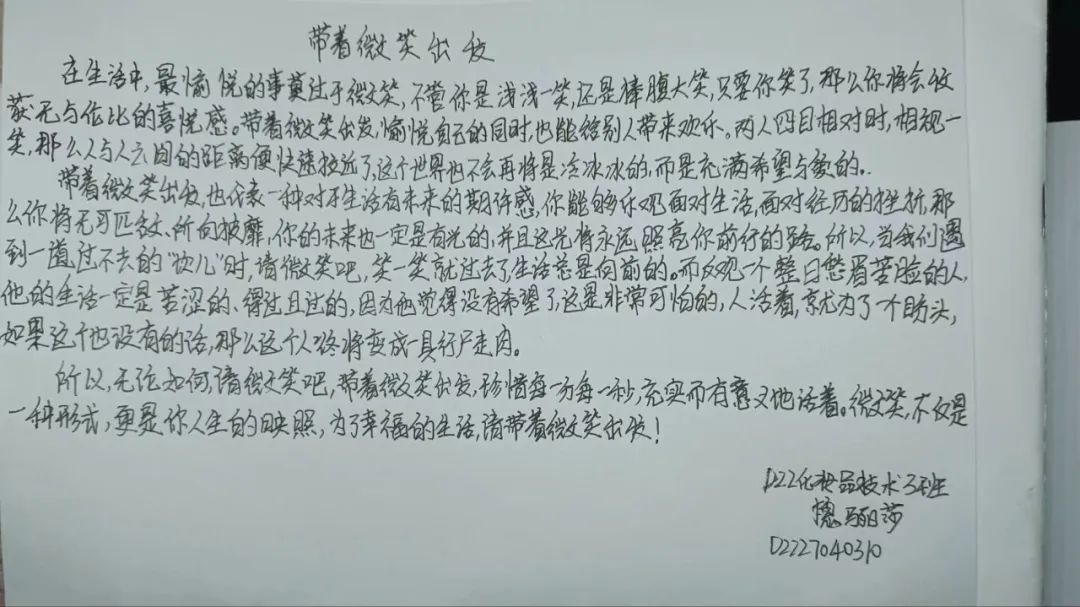 带着微笑出发
在生活中,最愉悦的事莫过于微笑,不管你是浅浅一笑,还是捧腹大笑,只要你笑了,那么你将会收
获无与伦比的喜悦感。带着微笑出发,愉悦自己的同时,也能给别人带来欢乐。两人四目相对时,相视一
笑,那么人与人之间的距离便快速拉近了,这个世界也不会再将是冷冰冰的,而是充满希望与爱的。
带着微笑出发,也代表一种对于生活有未来的期许感,你能够乐观面对生活,面对经历的挫折,那
么你将无可匹敌、所向披靡,你的未来也一定是有光的,并且这光将永远照亮你前行的路。所以,当我们遇
到一道过不去的"坎儿"时,请微笑吧,笑一笑就过去了,生活总是向前的。而反观一个整日愁眉苦脸的人,
他的生活一定是苦涩的、得过且过的,因为他觉得没有希望了,这是非常可怕的,人活着,就为了一个盼头,
如果这个也没有的话,那么这个人终将变成一具行尸走肉。
所以,无论如何,请微笑吧,带着微笑出发,珍惜每一分每一秒,充实而有意义地活着。微笑,不仅是
一种形式,更是你人生的映照,为了幸福的生活,请带着微笑出发!
D22化妆品技术3班
丽莎
D2227040310